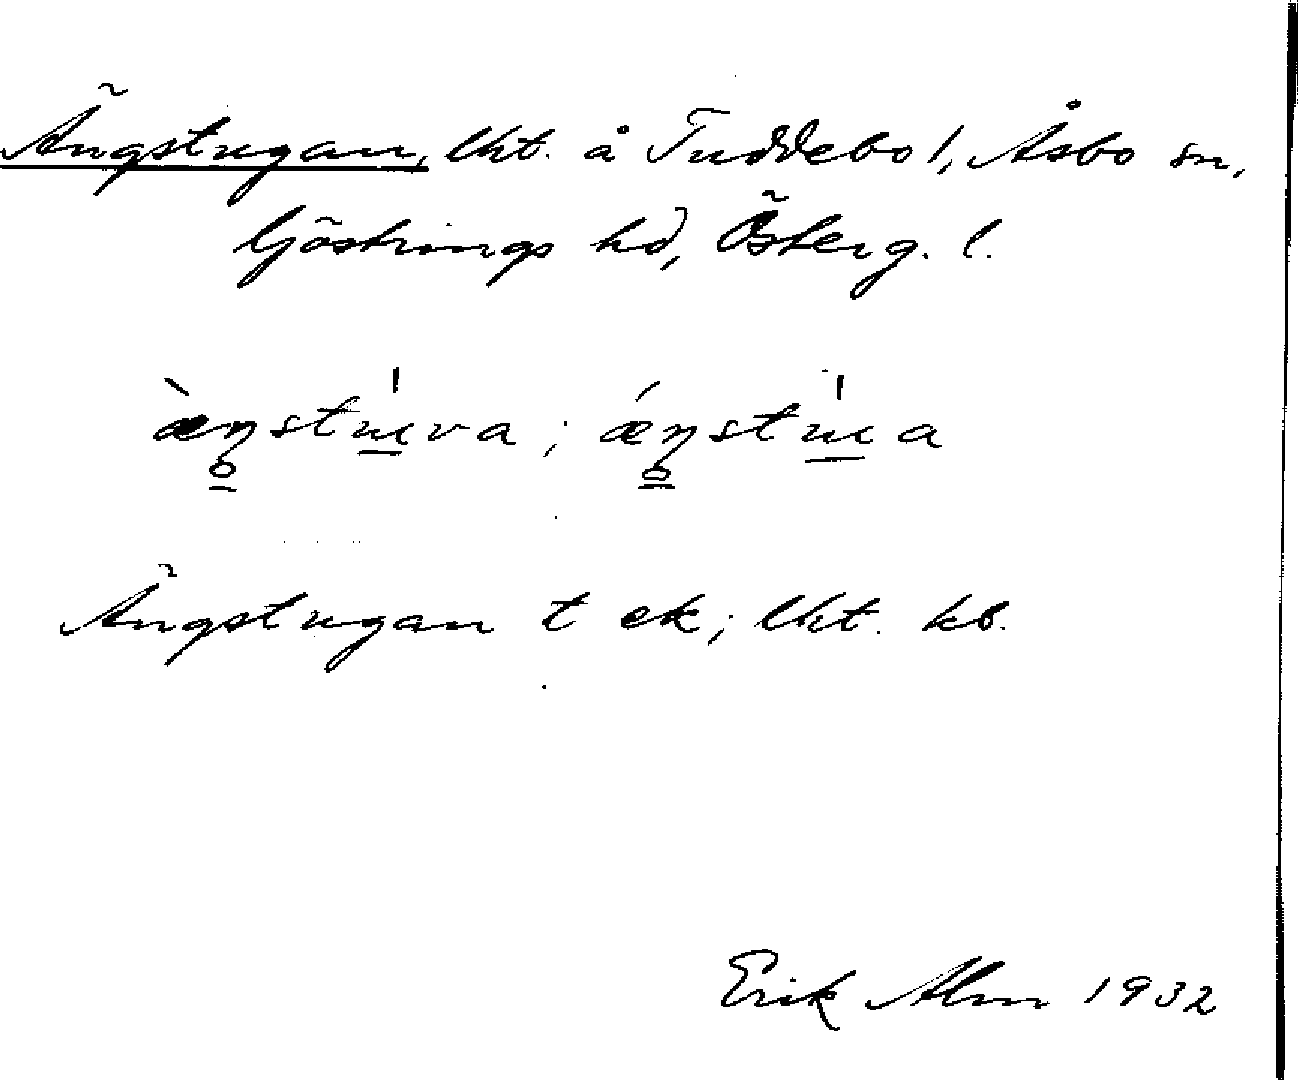 Ängstugan, lht. å Tuddebo 1, Åsbo sn,
Göstrings hd, Österg. l.
æŋstɯva; æŋstɯa
Ängstugan t ek; lht. kb.
Erik Alm 1932